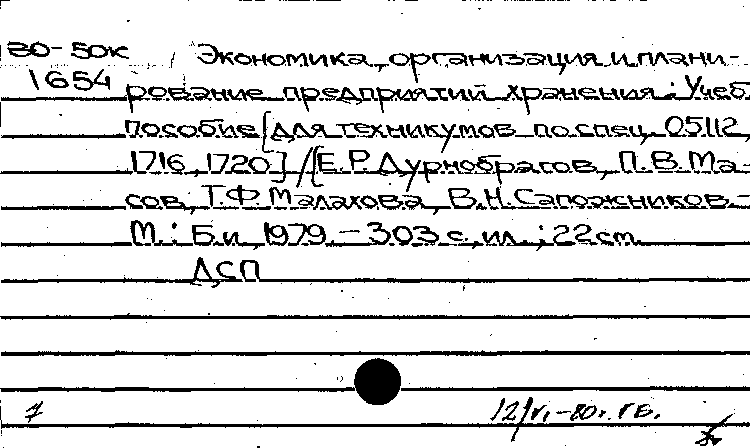 80-50к Экономика, организация и плани-
1654 рование предприятий хранения: Учеб.
пособие [для техникумов по спец. 05112,
1716, 1720] / [Е.Р. Дурнобрагов, П.В. Ма-
сов, Т.Ф. Малахова, В.Н. Сапожников. -
М.: Б.и., 1979. - 303 с., ил.; 22 см.
ДСП
7 12/VI-80г.